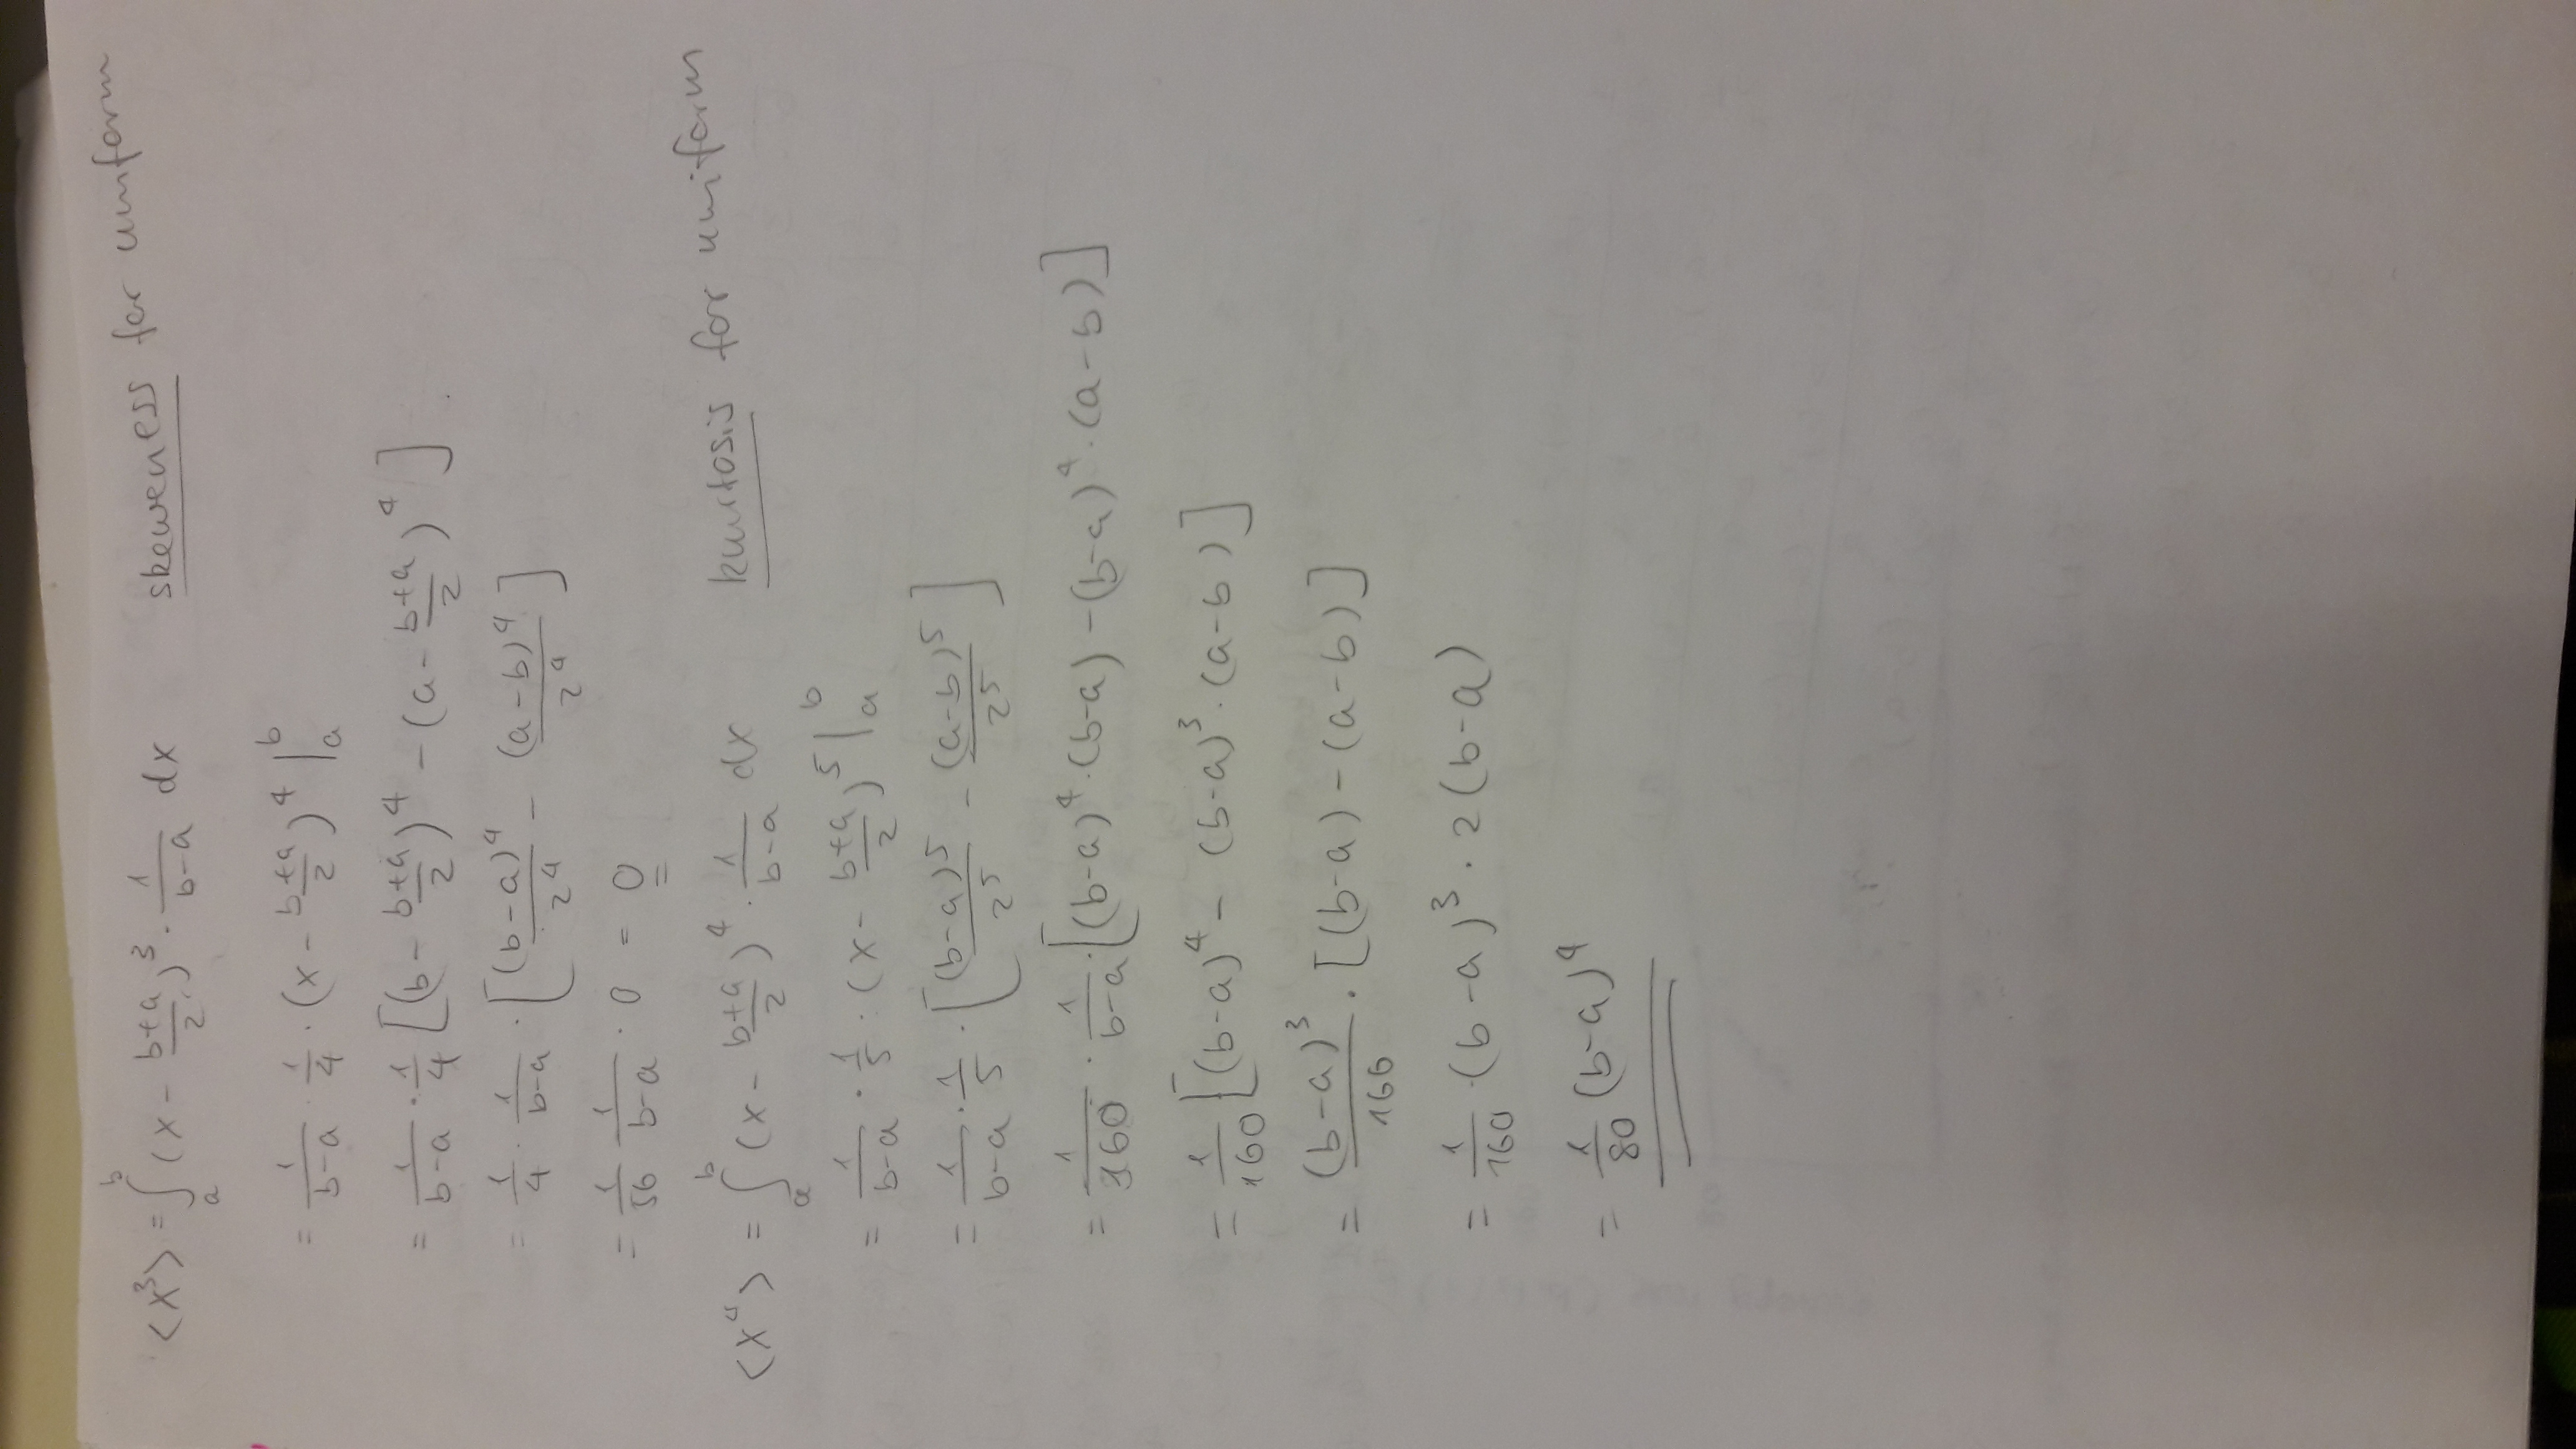 <x³> = ∫_a^b (x - (b+a)/2)³ · 1/(b-a) dx skeweness for uniform
= 1/(b-a) · 1/4 · (x - (b+a)/2)⁴ |_a^b
= 1/(b-a) · 1/4 [(b - (b+a)/2)⁴ - (a - (b+a)/2)⁴]
= 1/4 · 1/(b-a) · [(b-a)⁴/2⁴ - (a-b)⁴/2⁴]
= 1/56 1/(b-a) · 0 = 0
<x⁴> = ∫_a^b (x - (b+a)/2)⁴ · 1/(b-a) dx kurtosis for uniform
= 1/(b-a) · 1/5 · (x - (b+a)/2)⁵ |_a^b
= 1/(b-a) · 1/5 · [(b-a)⁵/2⁵ - (a-b)⁵/2⁵]
= 1/160 · 1/(b-a) · [(b-a)⁴ · (b-a) - (b-a)⁴ · (a-b)]
= 1/160 [(b-a)⁴ - (b-a)³ · (a-b)]
= (b-a)³/160 · [(b-a) - (a-b)]
= 1/160 · (b-a)³ · 2(b-a)
= 1/80 (b-a)⁴